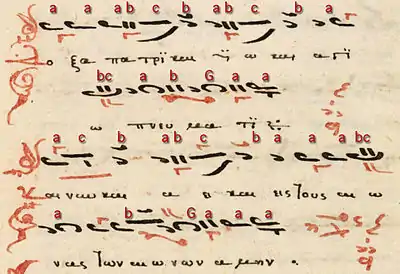 a a ab c b ab c b a
ο ξα πα τρι και ϋ ω και α γι
bc a b G a a
ω πνευ μα τι
a c b a b c b a a a bc
και νυν και α ει και εις τους αι ω
a a b G a a a
νας των αι ω νων α μην .